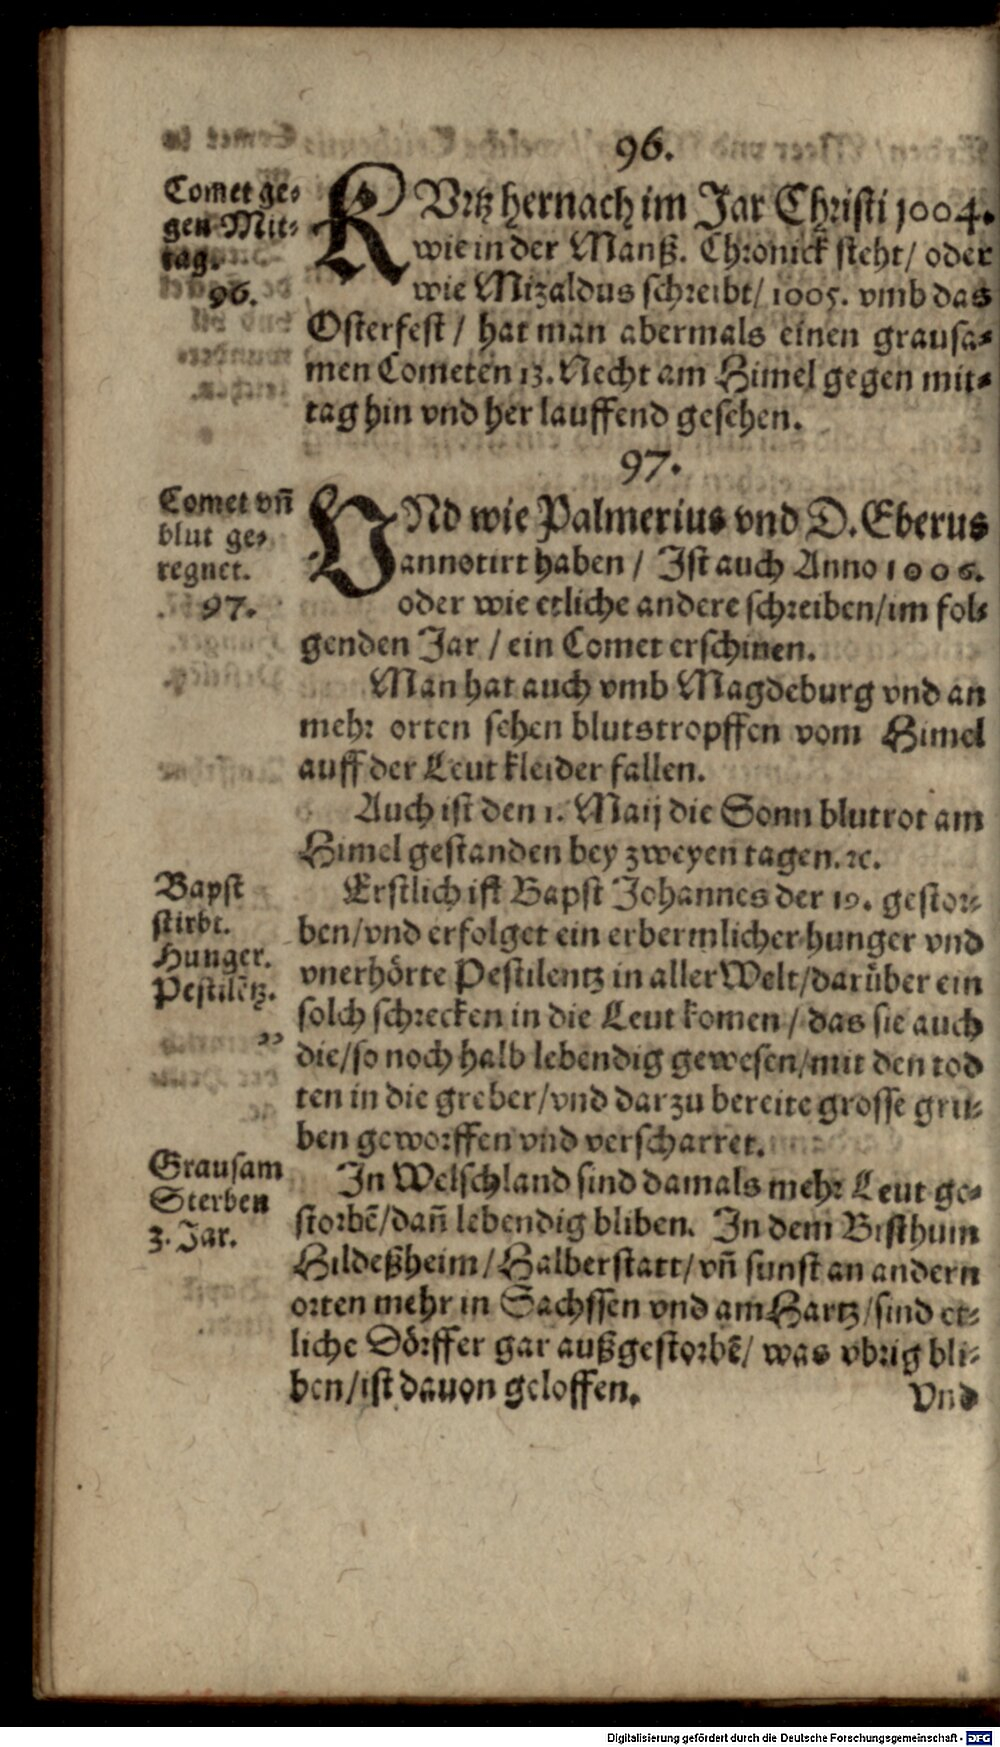 96.
Comet ge⸗
gen Mit⸗
tag.
96.
KVrtz hernach im Jar Christi 1004.
wie in der Manß. Chronick steht/ oder
wie Mizaldus schreibt/ 1005. vmb das
Osterfest / hat man abermals einen grausa⸗
men Cometen 13. Necht am Himel gegen mit⸗
tag hin vnd her lauffend gesehen.
97.
Comet vñ
blut ge⸗
regnet.
97.
VNd wie Palmerius vnd D. Eberus
annotirt haben / Ist auch Anno 1006.
oder wie etliche andere schreiben/im fol⸗
genden Jar / ein Comet erschinen.
Man hat auch vmb Magdeburg vnd an
mehr orten sehen blutstropffen vom Himel
auff der Leut kleider fallen.
Auch ist den 1. Maij die Sonn blutrot am
Himel gestanden bey zweyen tagen. ꝛc.
Bapst
stirbt.
Hunger.
Pestilẽtz.
„
Erstlich ist Bapst Johannes der 19. gestor⸗
ben/vnd erfolget ein erbermlicher hunger vnd
vnerhörte Pestilentz in aller Welt/darüber ein
solch schrecken in die Leut komen / das sie auch
die/so noch halb lebendig gewesen/mit den tod
ten in die greber/vnd darzu bereite grosse gru⸗
ben geworffen vnd verscharret.
Grausam
Sterben
3. Jar.
In Welschland sind damals mehr Leut ge⸗
storbẽ/dañ lebendig bliben. In dem Bisthum
Hildeßheim/Halberstatt/vñ sunst an andern
orten mehr in Sachssen vnd am Hartz/sind et⸗
liche Dörffer gar außgestorbẽ/ was vbrig bli⸗
ben/ist dauon geloffen.
Vnd
Digitalisierung gefördert durch die Deutsche Forschungsgemeinschaft - DFG